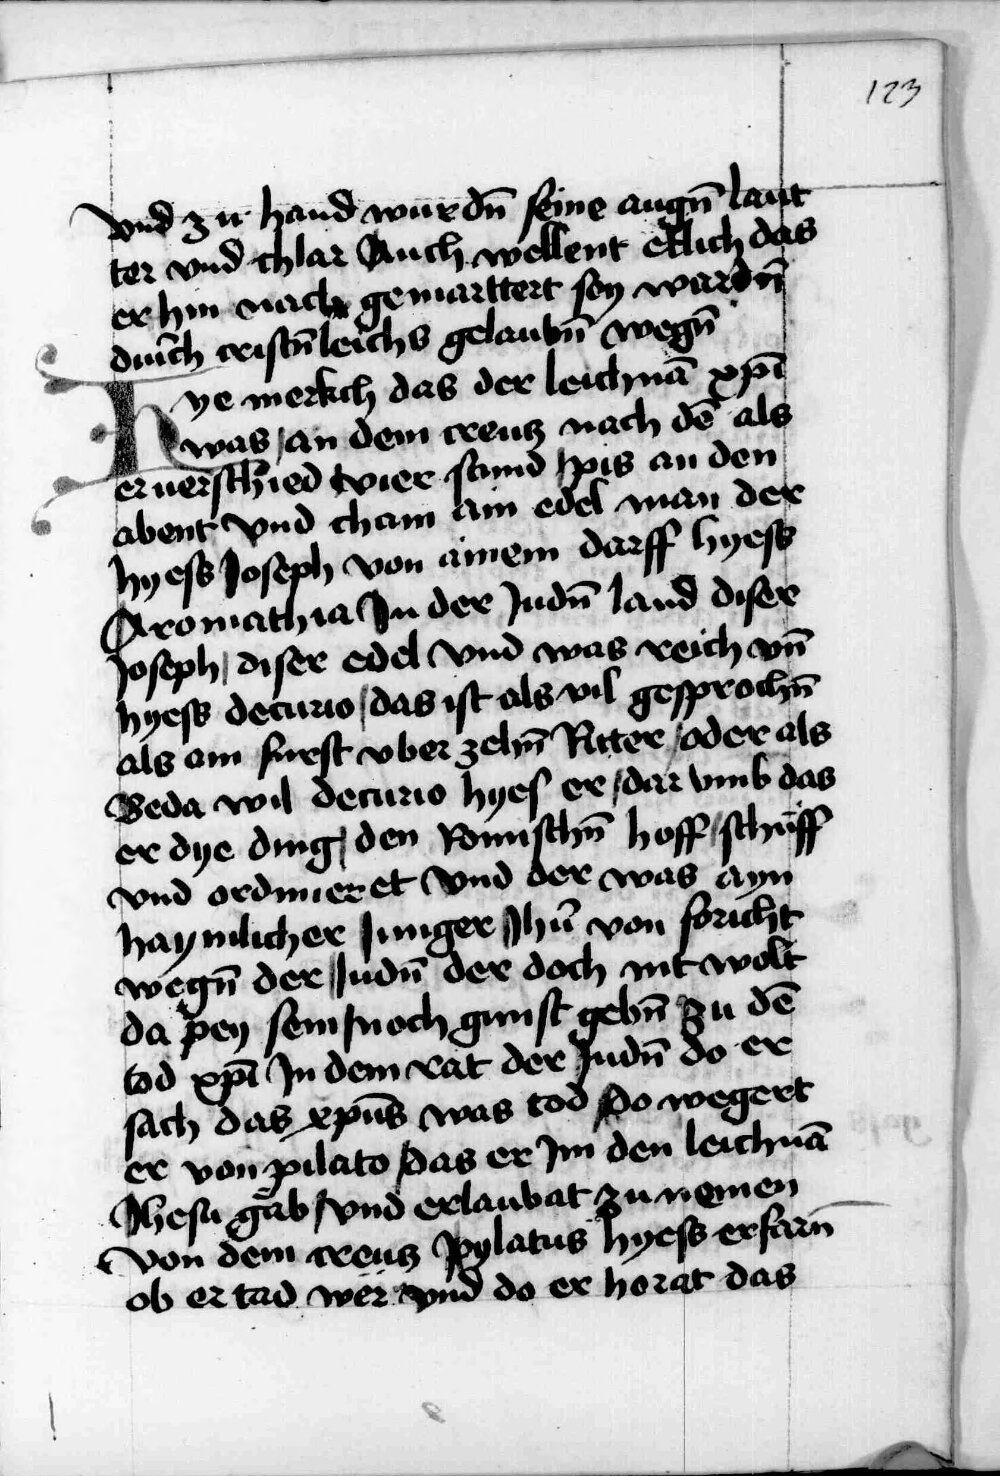 123
vnd zu hand wurdn̄ seine augn̄ laut
ter vnd chlar Auch wellent etlich das
er hin nach gemarttert sey wardn̄
durch cristn̄leichs gelaubn̄ wegn̄
Hye merkch das der leichnā xp̄i
was / an dem creutz nach dē als
er uerschied vier stund / pis an den
abent Vnd cham ain edel man der
hyess Joseph von ainem darff hyess
Aromathia In der Judn̄ land diser
Joseph / diser edel Vnd was reich vn̄
hyess decurio / das ist als vil gesprochn̄
als ain furst vber zehn̄ Ritter / oder als
Beda wil decurio hyes er / dar vmb das
er dye ding / den Romischn̄ hoff / schuff
vnd ordinieret Vnd der was ayn
haymlicher Junger Jhū von foricht
wegn̄ der Judn̄ der doch nit wolt
da pey sein / noch gunst gebn̄ zu dē
tod xp̄i In dem rat der Judn̄ do er
sach das xp̄us was tod / Do wegert
er von pilato / das er Im den leichnā
Jhesu gab / vnd erlaubat zu nemen
Von dem creutz Pylatus hyess erfarn̄
ob er tad wer vnd do er horat das